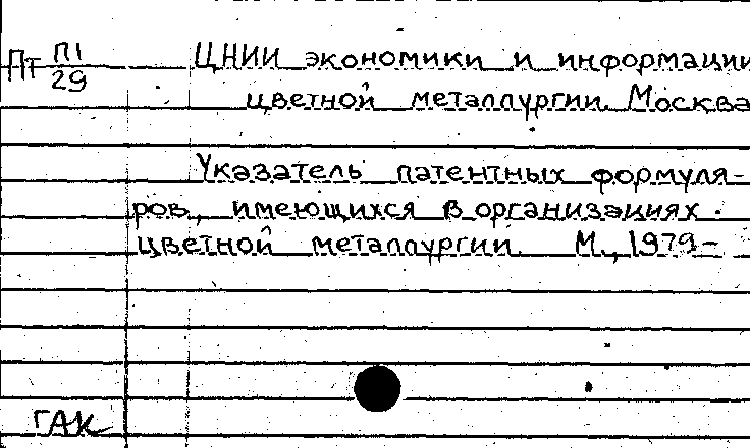 Пт П1/29
ЦНИИ экономики и информации
цветной металлургии. Москва
Указатель патентных формуля-
ров, имеющихся в организациях
цветной металлургии. М., 1979-
ГАК